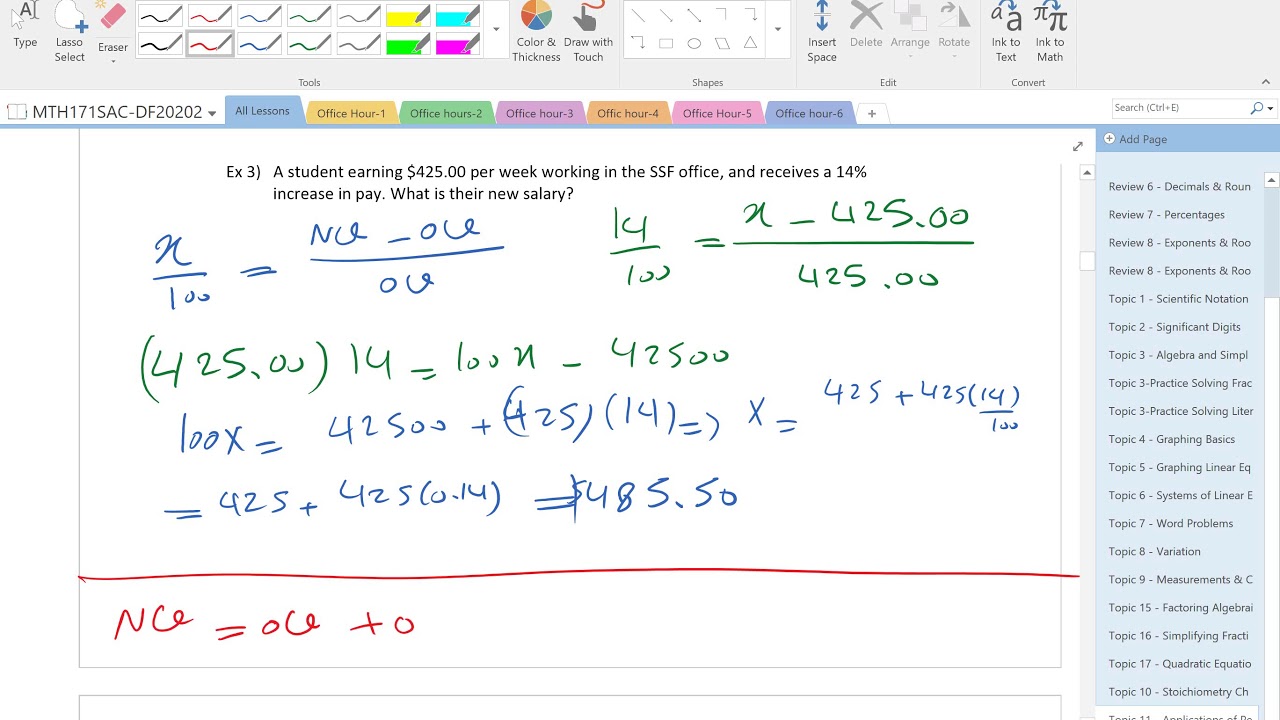 Type
Lasso Select
Eraser
Color & Thickness
Draw with Touch
Insert Space
Delete
Arrange
Rotate
Ink to Text
Ink to Math
Tools
Shapes
Edit
Convert
MTH171SAC-DF20202
All Lessons
Office Hour-1
Office hours-2
Office hour-3
Offic hour-4
Office Hour-5
Office hour-6
Search (Ctrl+E)
Add Page
Ex 3) A student earning $425.00 per week working in the SSF office, and receives a 14%
increase in pay. What is their new salary?
x/100 = (NV - OV)/OV
14/100 = (x - 425.00)/425.00
(425.00) 14 = 100x - 42500
100x = 42500 + (425)(14) => x = 425 + 425(14)/100
= 425 + 425(0.14) = $485.50
NV = OV + O
Review 6 - Decimals & Roun
Review 7 - Percentages
Review 8 - Exponents & Roo
Review 8 - Exponents & Roo
Topic 1 - Scientific Notation
Topic 2 - Significant Digits
Topic 3 - Algebra and Simpl
Topic 3-Practice Solving Frac
Topic 3-Practice Solving Liter
Topic 4 - Graphing Basics
Topic 5 - Graphing Linear Eq
Topic 6 - Systems of Linear E
Topic 7 - Word Problems
Topic 8 - Variation
Topic 9 - Measurements & C
Topic 15 - Factoring Algebrai
Topic 16 - Simplifying Fracti
Topic 17 - Quadratic Equatio
Topic 10 - Stoichiometry Ch
Topic 11 - Applications of Re